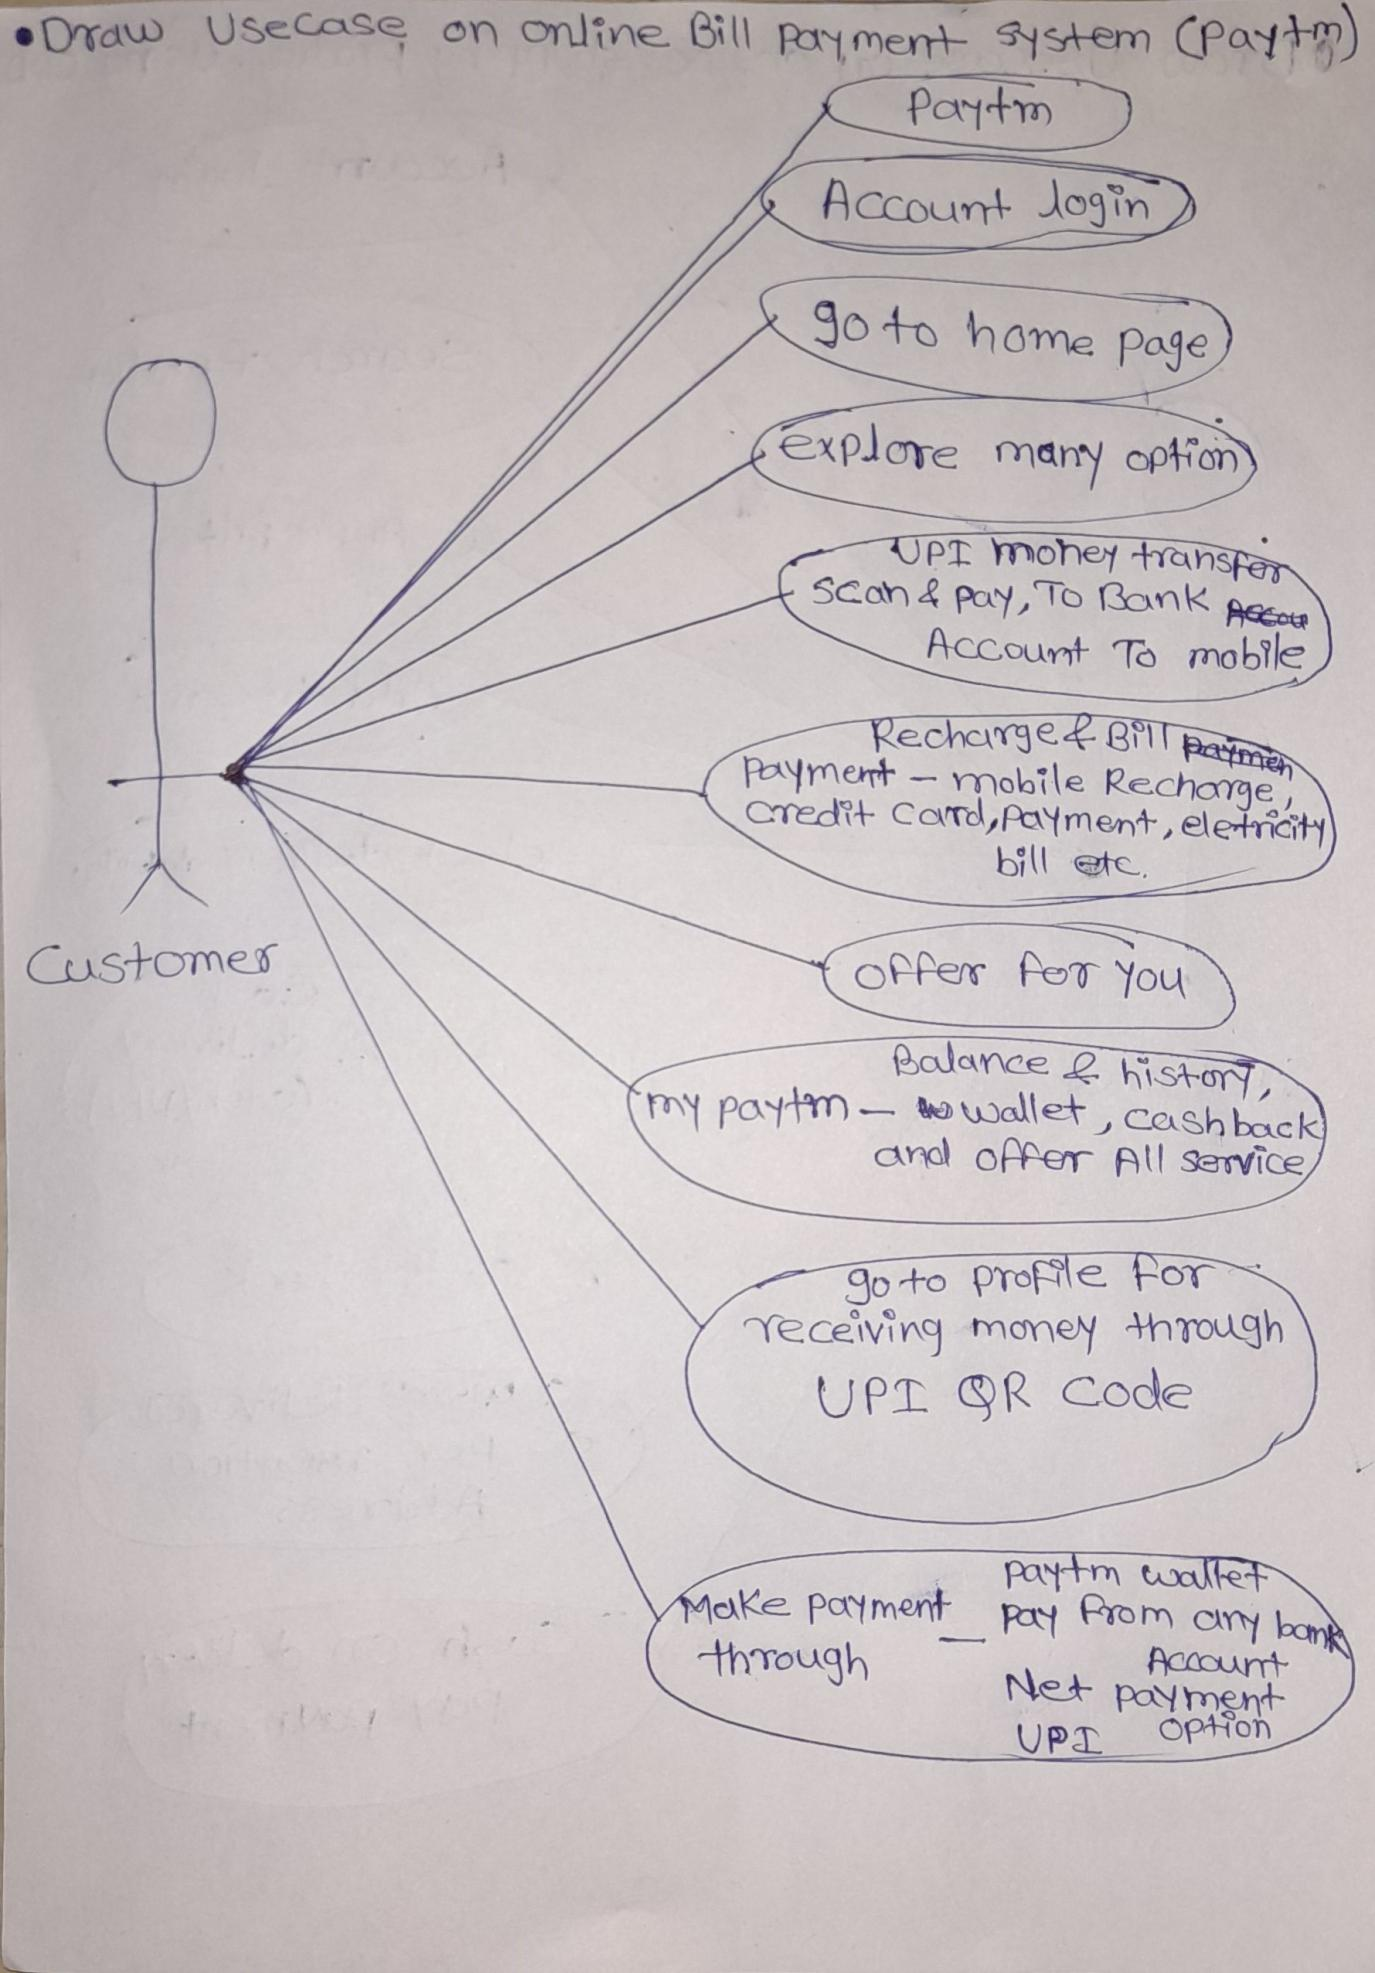 •Draw Usecase on online Bill Payment system (Paytm)
Paytm
Account login
go to home page
explore many option
UPI money transfer
scan & pay, To Bank
Account To mobile
Recharge & Bill
payment – mobile Recharge,
credit card, payment, eletricity
bill etc.
Customer
offer for you
Balance & history,
my paytm – wallet, cashback
and offer All service
go to profile for
receiving money through
UPI QR code
Make payment –
through
paytm wallet
pay from any bank
Account
Net payment
UPI option